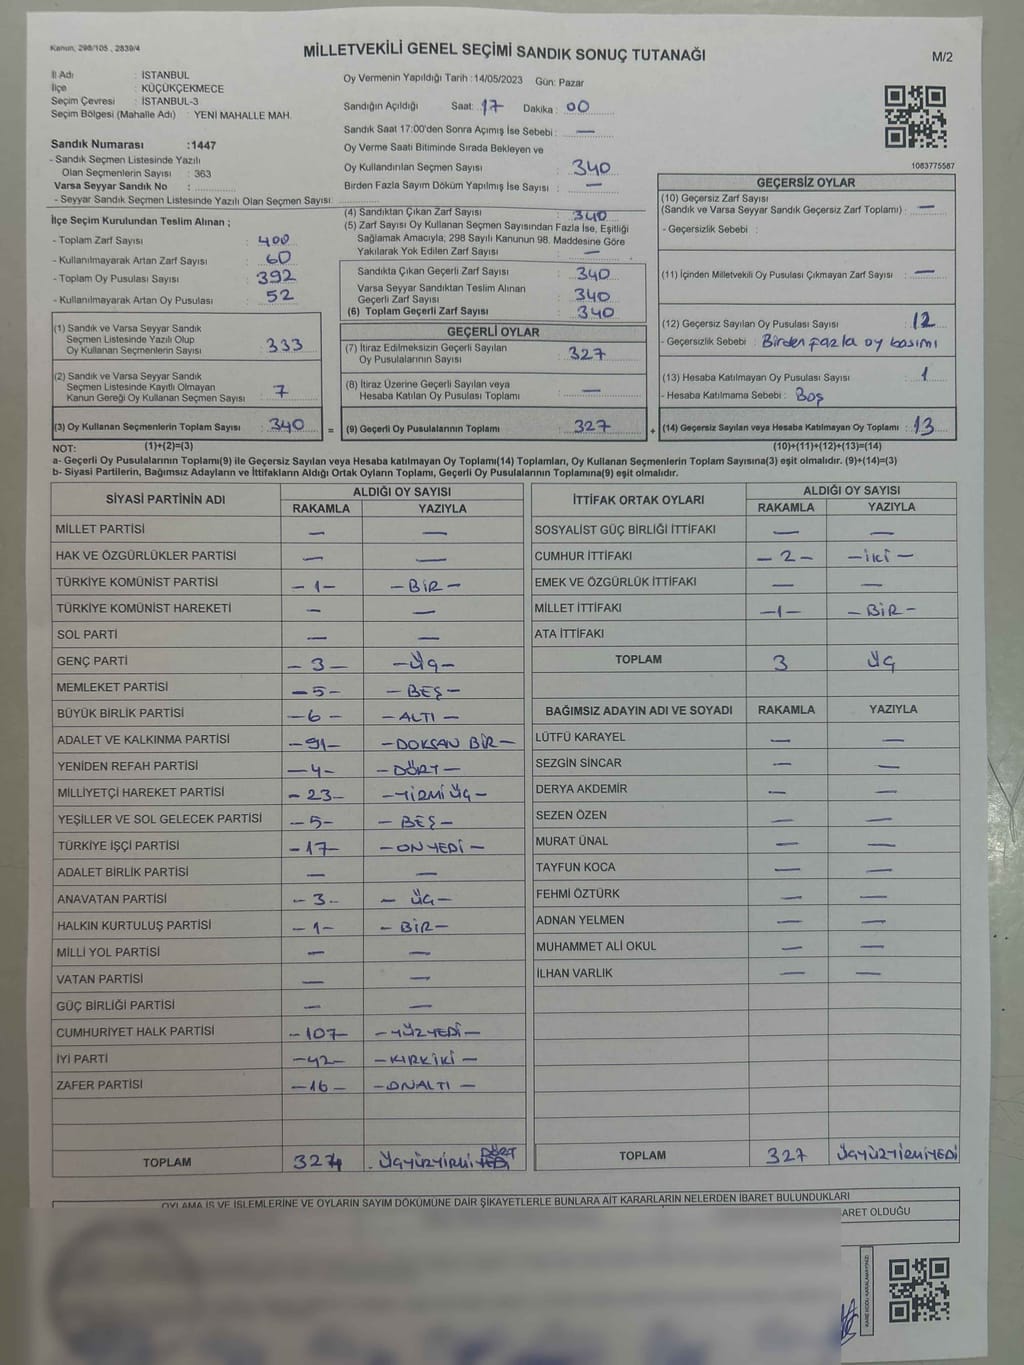 Kanun, 298/105, 2839/4
MİLLETVEKİLİ GENEL SEÇİMİ SANDIK SONUÇ TUTANAĞI
M/2
İl Adı : İSTANBUL
İlçe : KÜÇÜKÇEKMECE
Seçim Çevresi : İSTANBUL-3
Seçim Bölgesi (Mahalle Adı) : YENİ MAHALLE MAH.
Sandık Numarası :1447
- Sandık Seçmen Listesinde Yazılı
Olan Seçmenlerin Sayısı : 363
Varsa Seyyar Sandık No :
- Seyyar Sandık Seçmen Listesinde Yazılı Olan Seçmen Sayısı:
Oy Vermenin Yapıldığı Tarih :14/05/2023 Gün: Pazar
Sandığın Açıldığı Saat: 17 Dakika : 00
Sandık Saat 17:00'den Sonra Açımış İse Sebebi : —
Oy Verme Saati Bitiminde Sırada Bekleyen ve
Oy Kullandırılan Seçmen Sayısı : 340
Birden Fazla Sayım Döküm Yapılmış İse Sayısı : —
1083775587
İlçe Seçim Kurulundan Teslim Alınan ;
- Toplam Zarf Sayısı : 400
- Kullanılmayarak Artan Zarf Sayısı : 60
- Toplam Oy Pusulası Sayısı : 392
- Kullanılmayarak Artan Oy Pusulası : 52
(1) Sandık ve Varsa Seyyar Sandık
Seçmen Listesinde Yazılı Olup
Oy Kullanan Seçmenlerin Sayısı : 333
(2) Sandık ve Varsa Seyyar Sandık
Seçmen Listesinde Kayıtlı Olmayan
Kanun Gereği Oy Kullanan Seçmen Sayısı : 7
(3) Oy Kullanan Seçmenlerin Toplam Sayısı : 340
(4) Sandıktan Çıkan Zarf Sayısı : 340
(5) Zarf Sayısı Oy Kullanan Seçmen Sayısından Fazla İse, Eşitliği
Sağlamak Amacıyla; 298 Sayılı Kanunun 98. Maddesine Göre
Yakılarak Yok Edilen Zarf Sayısı : —
Sandıkta Çıkan Geçerli Zarf Sayısı : 340
Varsa Seyyar Sandıktan Teslim Alınan
Geçerli Zarf Sayısı : 340
(6) Toplam Geçerli Zarf Sayısı : 340
GEÇERLİ OYLAR
(7) İtiraz Edilmeksizin Geçerli Sayılan
Oy Pusulalarının Sayısı : 327
(8) İtiraz Üzerine Geçerli Sayılan veya
Hesaba Katılan Oy Pusulası Toplamı : —
= (9) Geçerli Oy Pusulalarının Toplamı : 327 +
GEÇERSİZ OYLAR
(10) Geçersiz Zarf Sayısı
(Sandık ve Varsa Seyyar Sandık Geçersiz Zarf Toplamı) : —
- Geçersizlik Sebebi :
(11) İçinden Milletvekili Oy Pusulası Çıkmayan Zarf Sayısı : —
(12) Geçersiz Sayılan Oy Pusulası Sayısı : 12
- Geçersizlik Sebebi : Birden fazla oy basımı
(13) Hesaba Katılmayan Oy Pusulası Sayısı : 1
- Hesaba Katılmama Sebebi : Boş
(14) Geçersiz Sayılan veya Hesaba Katılmayan Oy Toplamı : 13
NOT: (1)+(2)=(3) (10)+(11)+(12)+(13)=(14)
a- Geçerli Oy Pusulalarının Toplamı(9) ile Geçersiz Sayılan veya Hesaba katılmayan Oy Toplamı(14) Toplamları, Oy Kullanan Seçmenlerin Toplam Sayısına(3) eşit olmalıdır. (9)+(14)=(3)
b- Siyasi Partilerin, Bağımsız Adayların ve İttifakların Aldığı Ortak Oyların Toplamı, Geçerli Oy Pusulalarının Toplamına(9) eşit olmalıdır.
SİYASİ PARTİNİN ADI ALDIĞI OY SAYISI
RAKAMLA YAZIYLA
MİLLET PARTİSİ — —
HAK VE ÖZGÜRLÜKLER PARTİSİ — —
TÜRKİYE KOMÜNİST PARTİSİ -1- -BİR-
TÜRKİYE KOMÜNİST HAREKETİ — —
SOL PARTİ — —
GENÇ PARTİ -3- -ÜÇ-
MEMLEKET PARTİSİ -5- -BEŞ-
BÜYÜK BİRLİK PARTİSİ -6- -ALTI-
ADALET VE KALKINMA PARTİSİ -91- -DOKSAN BİR-
YENİDEN REFAH PARTİSİ -4- -DÖRT-
MİLLİYETÇİ HAREKET PARTİSİ -23- -YİRMİ ÜÇ-
YEŞİLLER VE SOL GELECEK PARTİSİ -5- -BEŞ-
TÜRKİYE İŞÇİ PARTİSİ -17- -ON YEDİ-
ADALET BİRLİK PARTİSİ — —
ANAVATAN PARTİSİ -3- -ÜÇ-
HALKIN KURTULUŞ PARTİSİ -1- -BİR-
MİLLİ YOL PARTİSİ — —
VATAN PARTİSİ — —
GÜÇ BİRLİĞİ PARTİSİ — —
CUMHURİYET HALK PARTİSİ -107- -YÜZ YEDİ-
İYİ PARTİ -42- -KIRK İKİ-
ZAFER PARTİSİ -16- -ONALTI-
TOPLAM 324 ÜÇYÜZYİRMİ DÖRT
İTTİFAK ORTAK OYLARI ALDIĞI OY SAYISI
RAKAMLA YAZIYLA
SOSYALİST GÜÇ BİRLİĞİ İTTİFAKI — —
CUMHUR İTTİFAKI -2- -İKİ-
EMEK VE ÖZGÜRLÜK İTTİFAKI — —
MİLLET İTTİFAKI -1- -BİR-
ATA İTTİFAKI
TOPLAM 3 ÜÇ
BAĞIMSIZ ADAYIN ADI VE SOYADI RAKAMLA YAZIYLA
LÜTFÜ KARAYEL — —
SEZGİN SİNCAR — —
DERYA AKDEMİR — —
SEZEN ÖZEN — —
MURAT ÜNAL — —
TAYFUN KOCA — —
FEHMİ ÖZTÜRK — —
ADNAN YELMEN — —
MUHAMMET ALİ OKUL — —
İLHAN VARLIK — —
TOPLAM 327 ÜÇYÜZYİRMİYEDİ
OYLAMA İŞ VE İŞLEMLERİNE VE OYLARIN SAYIM DÖKÜMÜNE DAİR ŞİKAYETLERLE BUNLARA AİT KARARLARIN NELERDEN İBARET BULUNDUKLARI
ARET OLDUĞU
KARE KODU KARALAMAYINIZ!